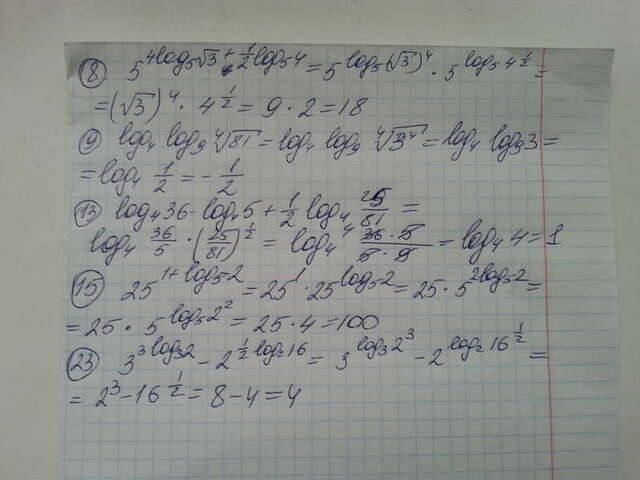 ⑧ 5^(4log₅√3 + ½log₅4) = 5^(log₅(√3)⁴) · 5^(log₅4^½) =
= (√3)⁴ · 4^½ = 9 · 2 = 18
⑨ log₄ log₉ ⁴√81 = log₄ log₉ ⁴√3⁴ = log₄ log₉3 =
= log₄ ½ = -½
⑬ log₄36 - log₄5 + ½ log₄ 25/81 =
log₄ 36/5 · (25/81)^½ = log₄ (36 · 5)/(5 · 9) = log₄ 4 = 1
⑮ 25^(1+log₅2) = 25¹ · 25^(log₅2) = 25 · 5^(2log₅2) =
= 25 · 5^(log₅2²) = 25 · 4 = 100
㉓ 3^(3log₃2) - 2^(½log₂16) = 3^(log₃2³) - 2^(log₂16^½) =
= 2³ - 16^½ = 8 - 4 = 4